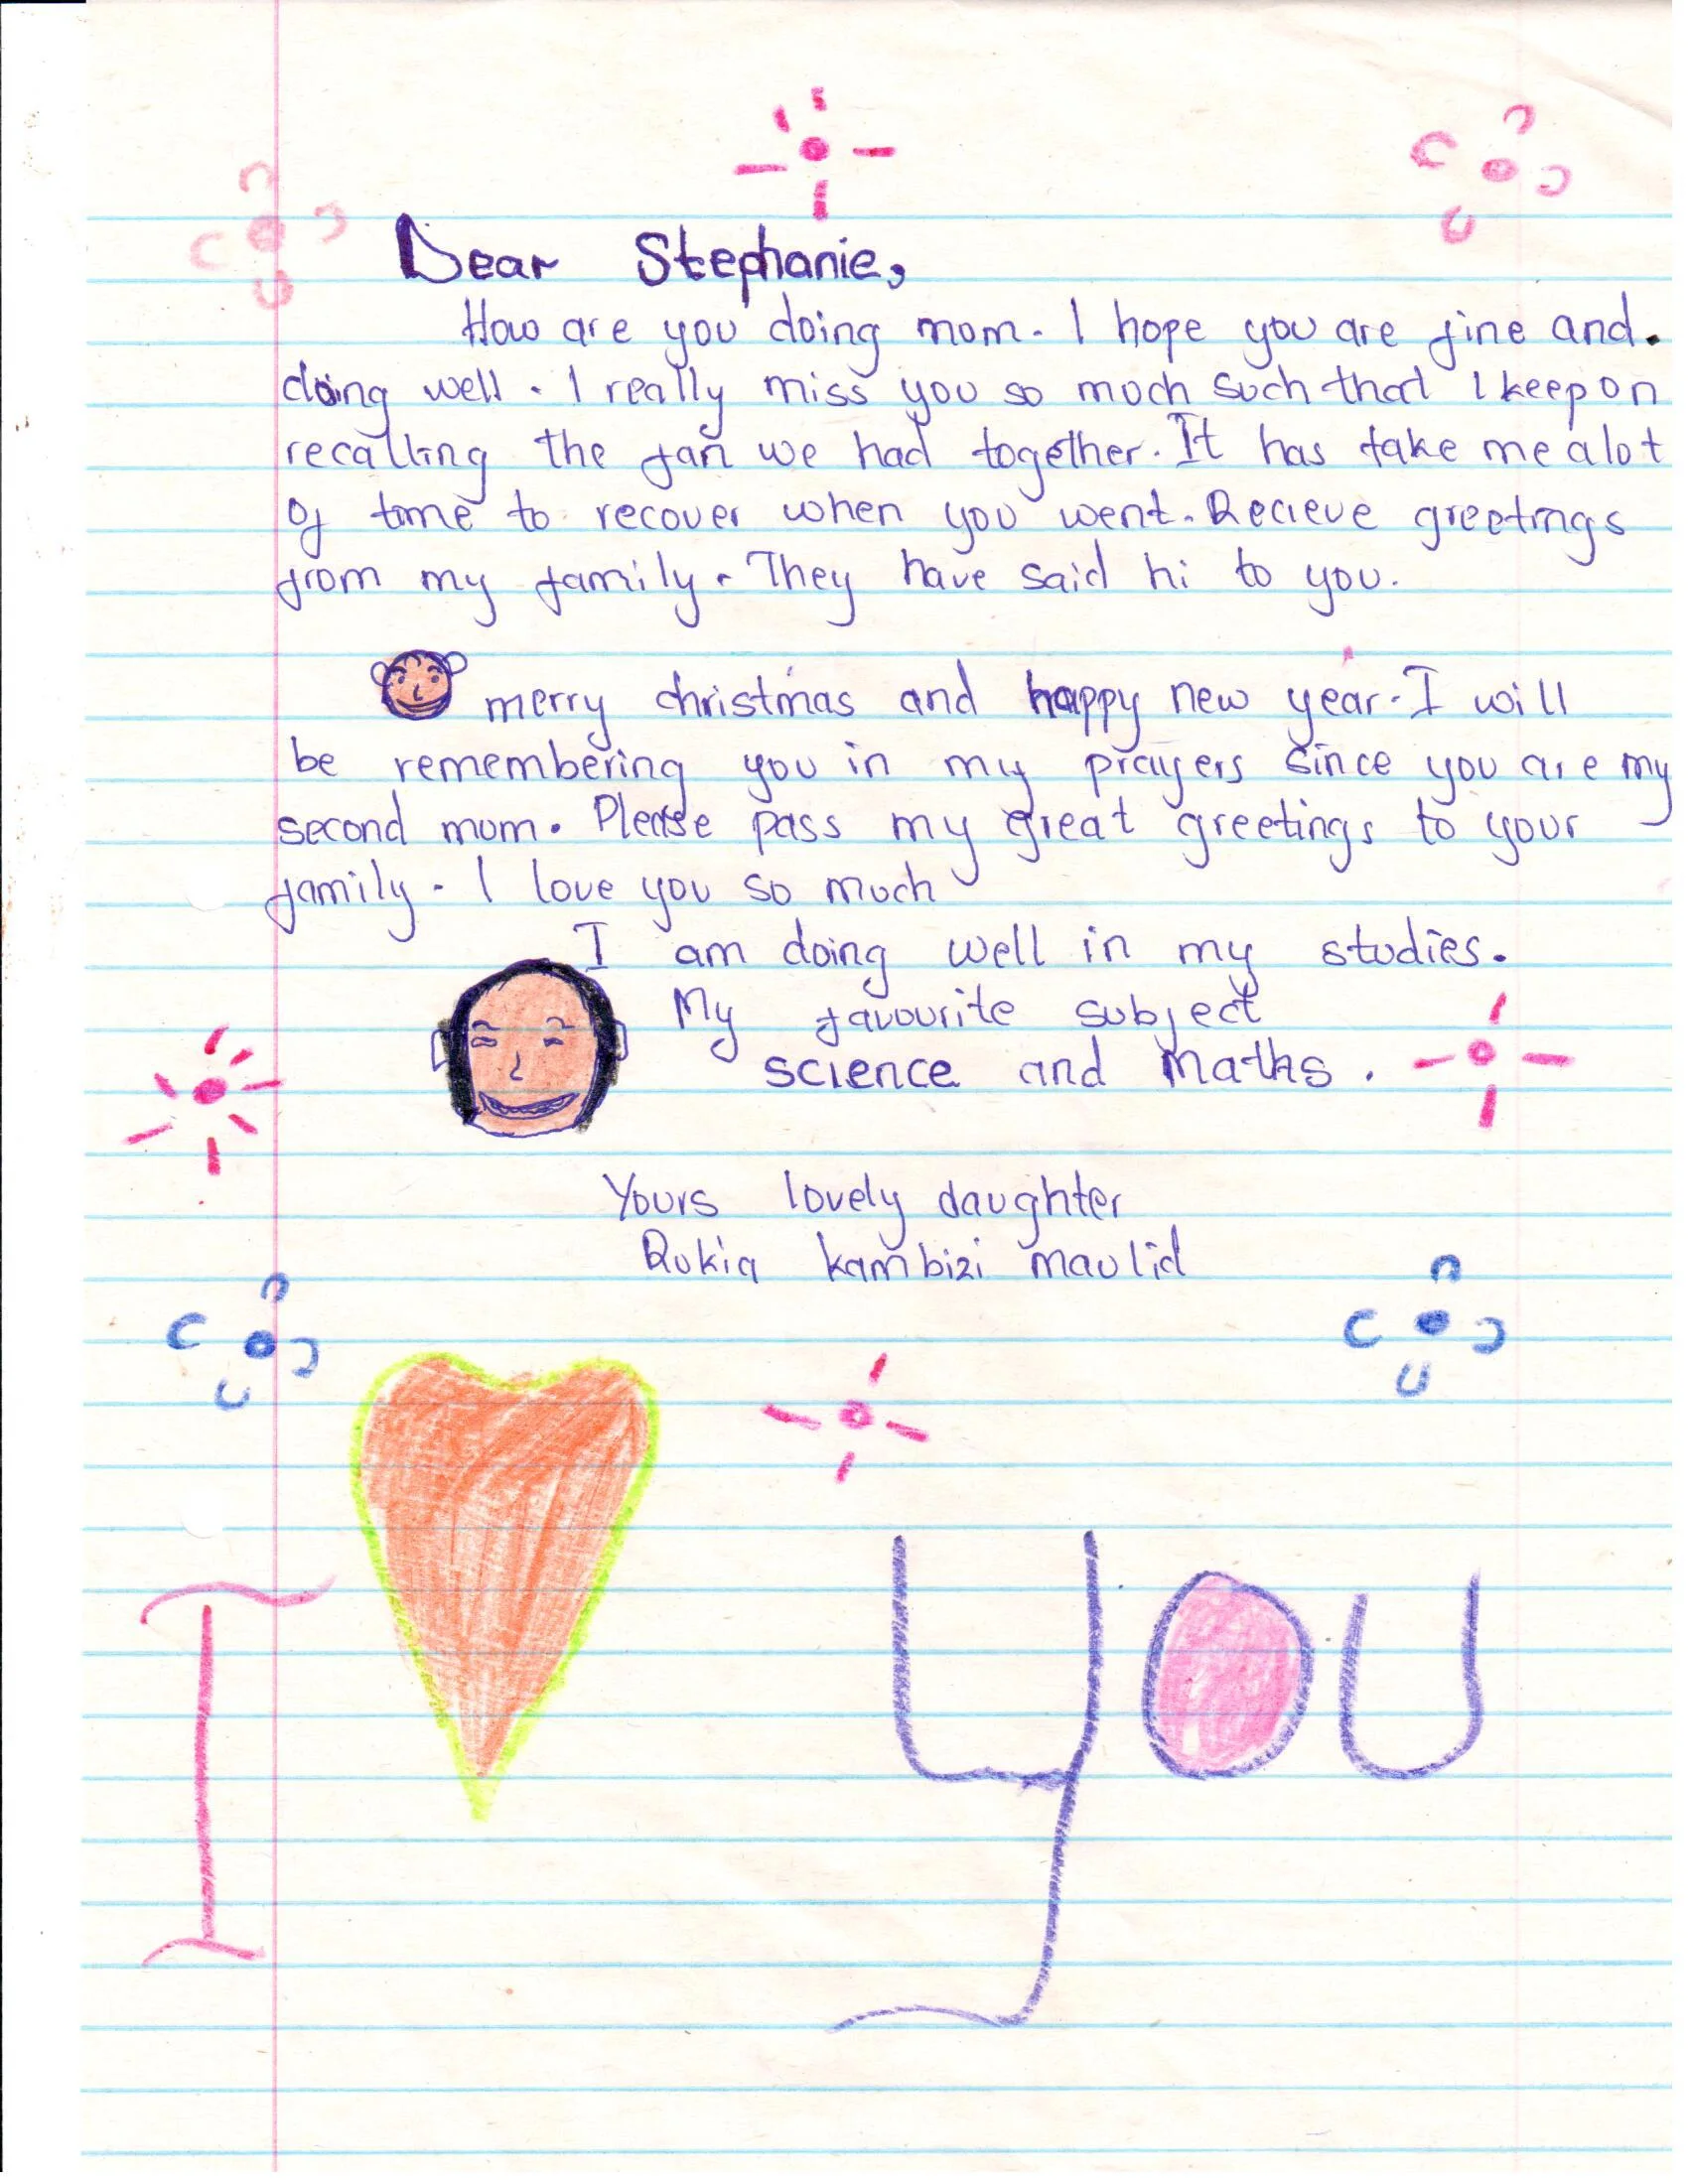 Dear Stephanie,
How are you doing mom. I hope you are fine and.
doing well. I really miss you so much such that I keep on
recalling the fan we had together. It has take me alot
of time to recover when you went. Recieve greetings
from my family. They have said hi to you.
merry christmas and happy new year. I will
be remembering you in my prayers since you are my
second mom. Please pass my great greetings to your
family. I love you so much
I am doing well in my studies.
My favourite subject
science and Maths.
Yours lovely daughter
Rukia kambizi maulid
I you